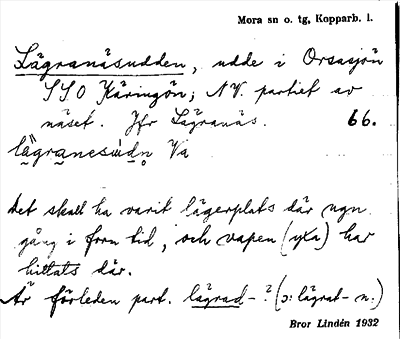 Mora sn o. tg, Kopparb. l.
Lägranäsudden, udde i Orsasjön
SSO Käringön; NV. partiet av
näset. Jfr Lägranäs. 66.
lägranesùdn Va
Det skall ha varit lägerplats där ngn
gång i forn tid, och vapen (yxa) har
hittats där.
Är förleden part. lägrad-? (ɔ: lägrat- n.)
Bror Lindén 1932